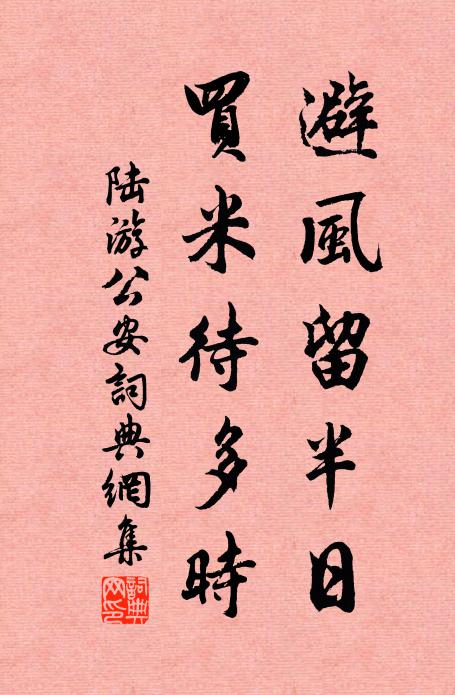 避風留半日
買米待多時
陆游公安詞典網集
詞典网印